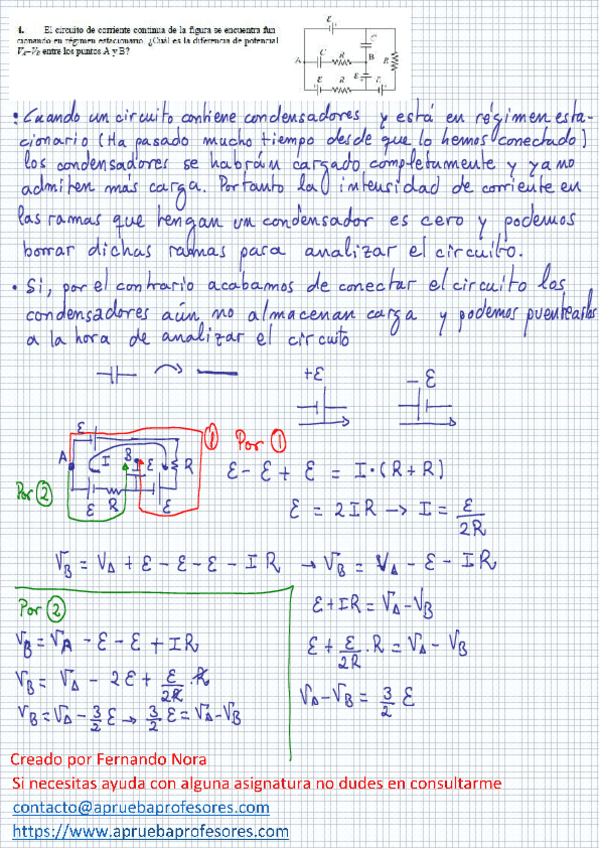 1. El circuito de corriente continua de la figura se encuentra fun
cionando en régimen estacionario. ¿Cuál es la diferencia de potencial
V_A-V_B entre los puntos A y B?
ε
C
A C R B R
ε
ε R ε
• Cuando un circuito contiene condensadores y está en régimen esta-
cionario (Ha pasado mucho tiempo desde que lo hemos conectado)
los condensadores se habrán cargado completamente y ya no
admiten más carga. Por tanto la intensidad de corriente en
las ramas que tengan un condensador es cero y podemos
borrar dichas ramas para analizar el circuito.
• Si, por el contrario acabamos de conectar el circuito los
condensadores aún no almacenan carga y podemos puentearlos
a la hora de analizar el circuto
+ε - ε
ε
A I B ε R
ε R ε
①
Por ②
Por ①
ε - ε + ε = I·(R+R)
ε = 2IR → I = ε/2R
V_B = V_A + ε - ε - ε - I R → V_B = V_A - ε - IR
ε + IR = V_A - V_B
ε + ε/2R . R = V_A - V_B
V_A - V_B = 3/2 ε
Por ②
V_B = V_A - ε - ε + IR
V_B = V_A - 2ε + ε/2R . R
V_B = V_A - 3/2 ε → 3/2 ε = V_A - V_B
Creado por Fernando Nora
Si necesitas ayuda con alguna asignatura no dudes en consultarme
contacto@apruebaprofesores.com
https://www.apruebaprofesores.com